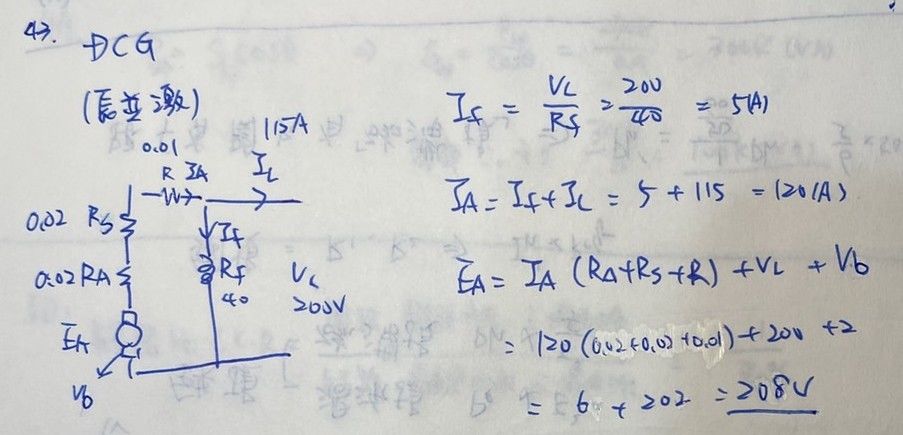 43.
DCG
(長並激)
115A
0.01
R IA IL
0.02 RS
If
0.02 RA
Rf
40
VL
200V
EA
Vb
If = VL/Rf = 200/40 = 5(A)
IA = If + IL = 5 + 115 = 120(A)
EA = IA (RA+RS+R) + VL + Vb
= 120 (0.02+0.02+0.01) + 200 + 2
= 6 + 202 = 208V